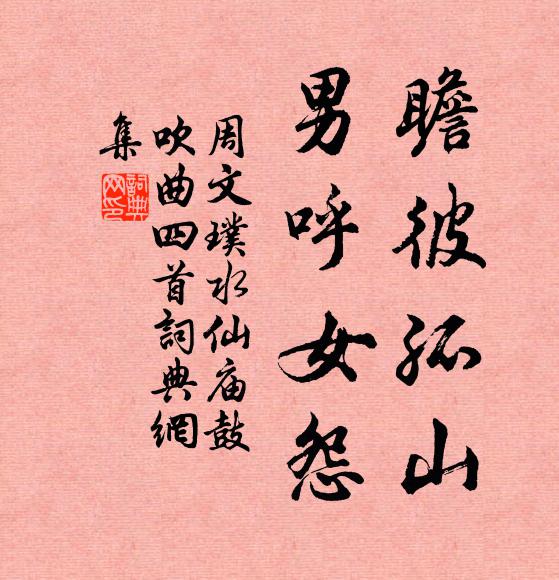 瞻彼孤山
男呼女怨
周文璞水仙庙鼓
吹曲四首詞典網
集
詞典
网印